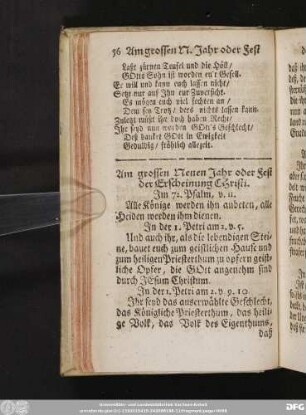 56 Am grossen N. Jahr oder Fest
Laßt zürnen Teufel und die Höll/
GOttes Sohn ist worden eu'r Gesell.
Er will und kann euch lassen nicht/
Setzt nur auf Ihn eur Zuversicht.
Es mögen euch viel fechten an/
Dem sey Trotz/ ders nichts lassen kann.
Zuletzt müßt ihr doch haben Recht/
Ihr seyd nun worden GOtt's Geschlecht/
Deß danket GOtt in Ewigkeit
Gedultig/ fröhlich allezeit.
Am grossen Neuen Jahr oder Fest
der Erscheinung Christi.
Im 72. Psalm, v. 11.
Alle Könige werden ihn anbeten, alle
Heiden werden ihm dienen.
In der 1. Petri am 2. v. 5.
Und auch ihr, als die lebendigen Stei-
ne, bauet euch zum geistlichen Hause und
zum heiligen Priesterthum zu opfern geist-
liche Opfer, die GOtt angenehm sind
durch JEsum Christum.
In der 1. Petri am 2. v. 9. 10.
Ihr seyd das auserwählte Geschlecht,
das Königliche Priesterthum, das heili-
ge Volk, das Volk des Eigenthums,
daß